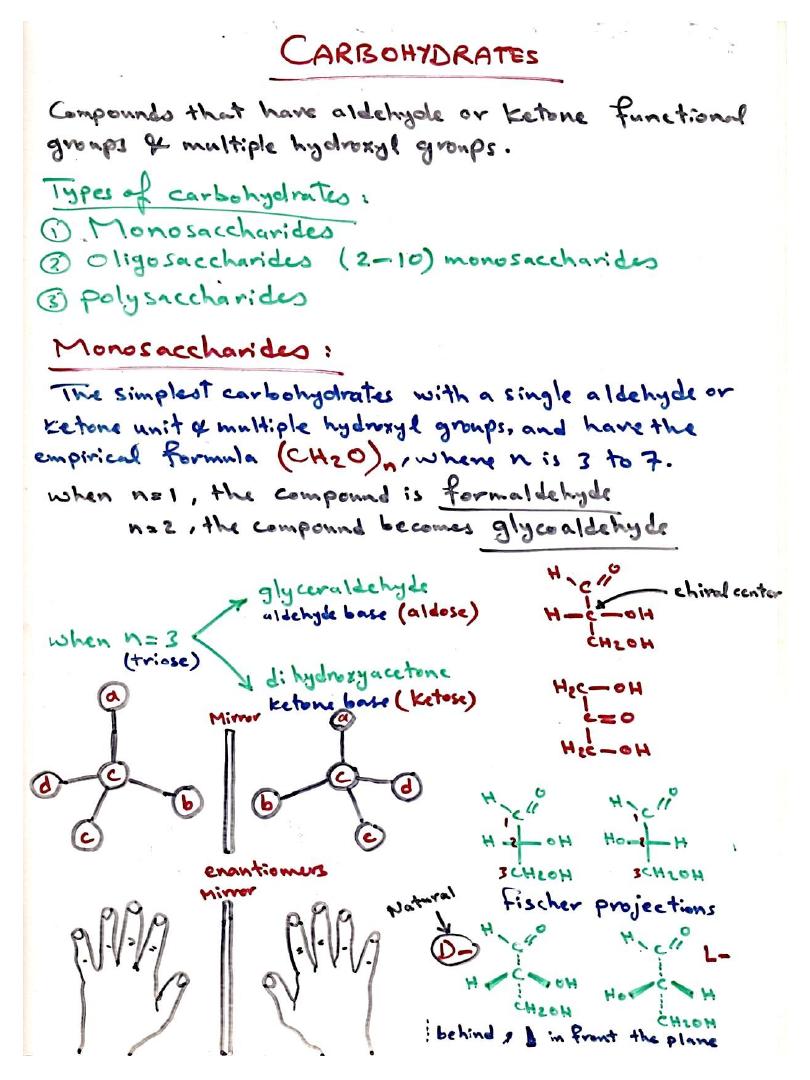 CARBOHYDRATES
Compounds that have aldehyde or ketone functional
groups & multiple hydroxyl groups.
Types of carbohydrates:
① Monosaccharides
② Oligosaccharides (2-10) monosaccharides
③ polysaccharides
Monosaccharides:
The simplest carbohydrates with a single aldehyde or
ketone unit & multiple hydroxyl groups, and have the
empirical formula (CH2O)n, where n is 3 to 7.
when n=1, the compound is formaldehyde
n=2, the compound becomes glycoaldehyde
when n=3
(triose)
glyceraldehyde
aldehyde base (aldose)
dihydroxyacetone
ketone base (ketose)
H C O
chiral center
H-C-OH
CH2OH
H2C-OH
C=O
H2C-OH
Mirror
a
d c b
c
a
b c d
c
enantiomers
Mirror
H C O
1
H 2 OH
3CH2OH
H C O
1
HO 2 H
3CH2OH
Fischer projections
Natural
D-
H C O
H C OH
CH2OH
L-
H C O
HO C H
CH2OH
behind, in front the plane